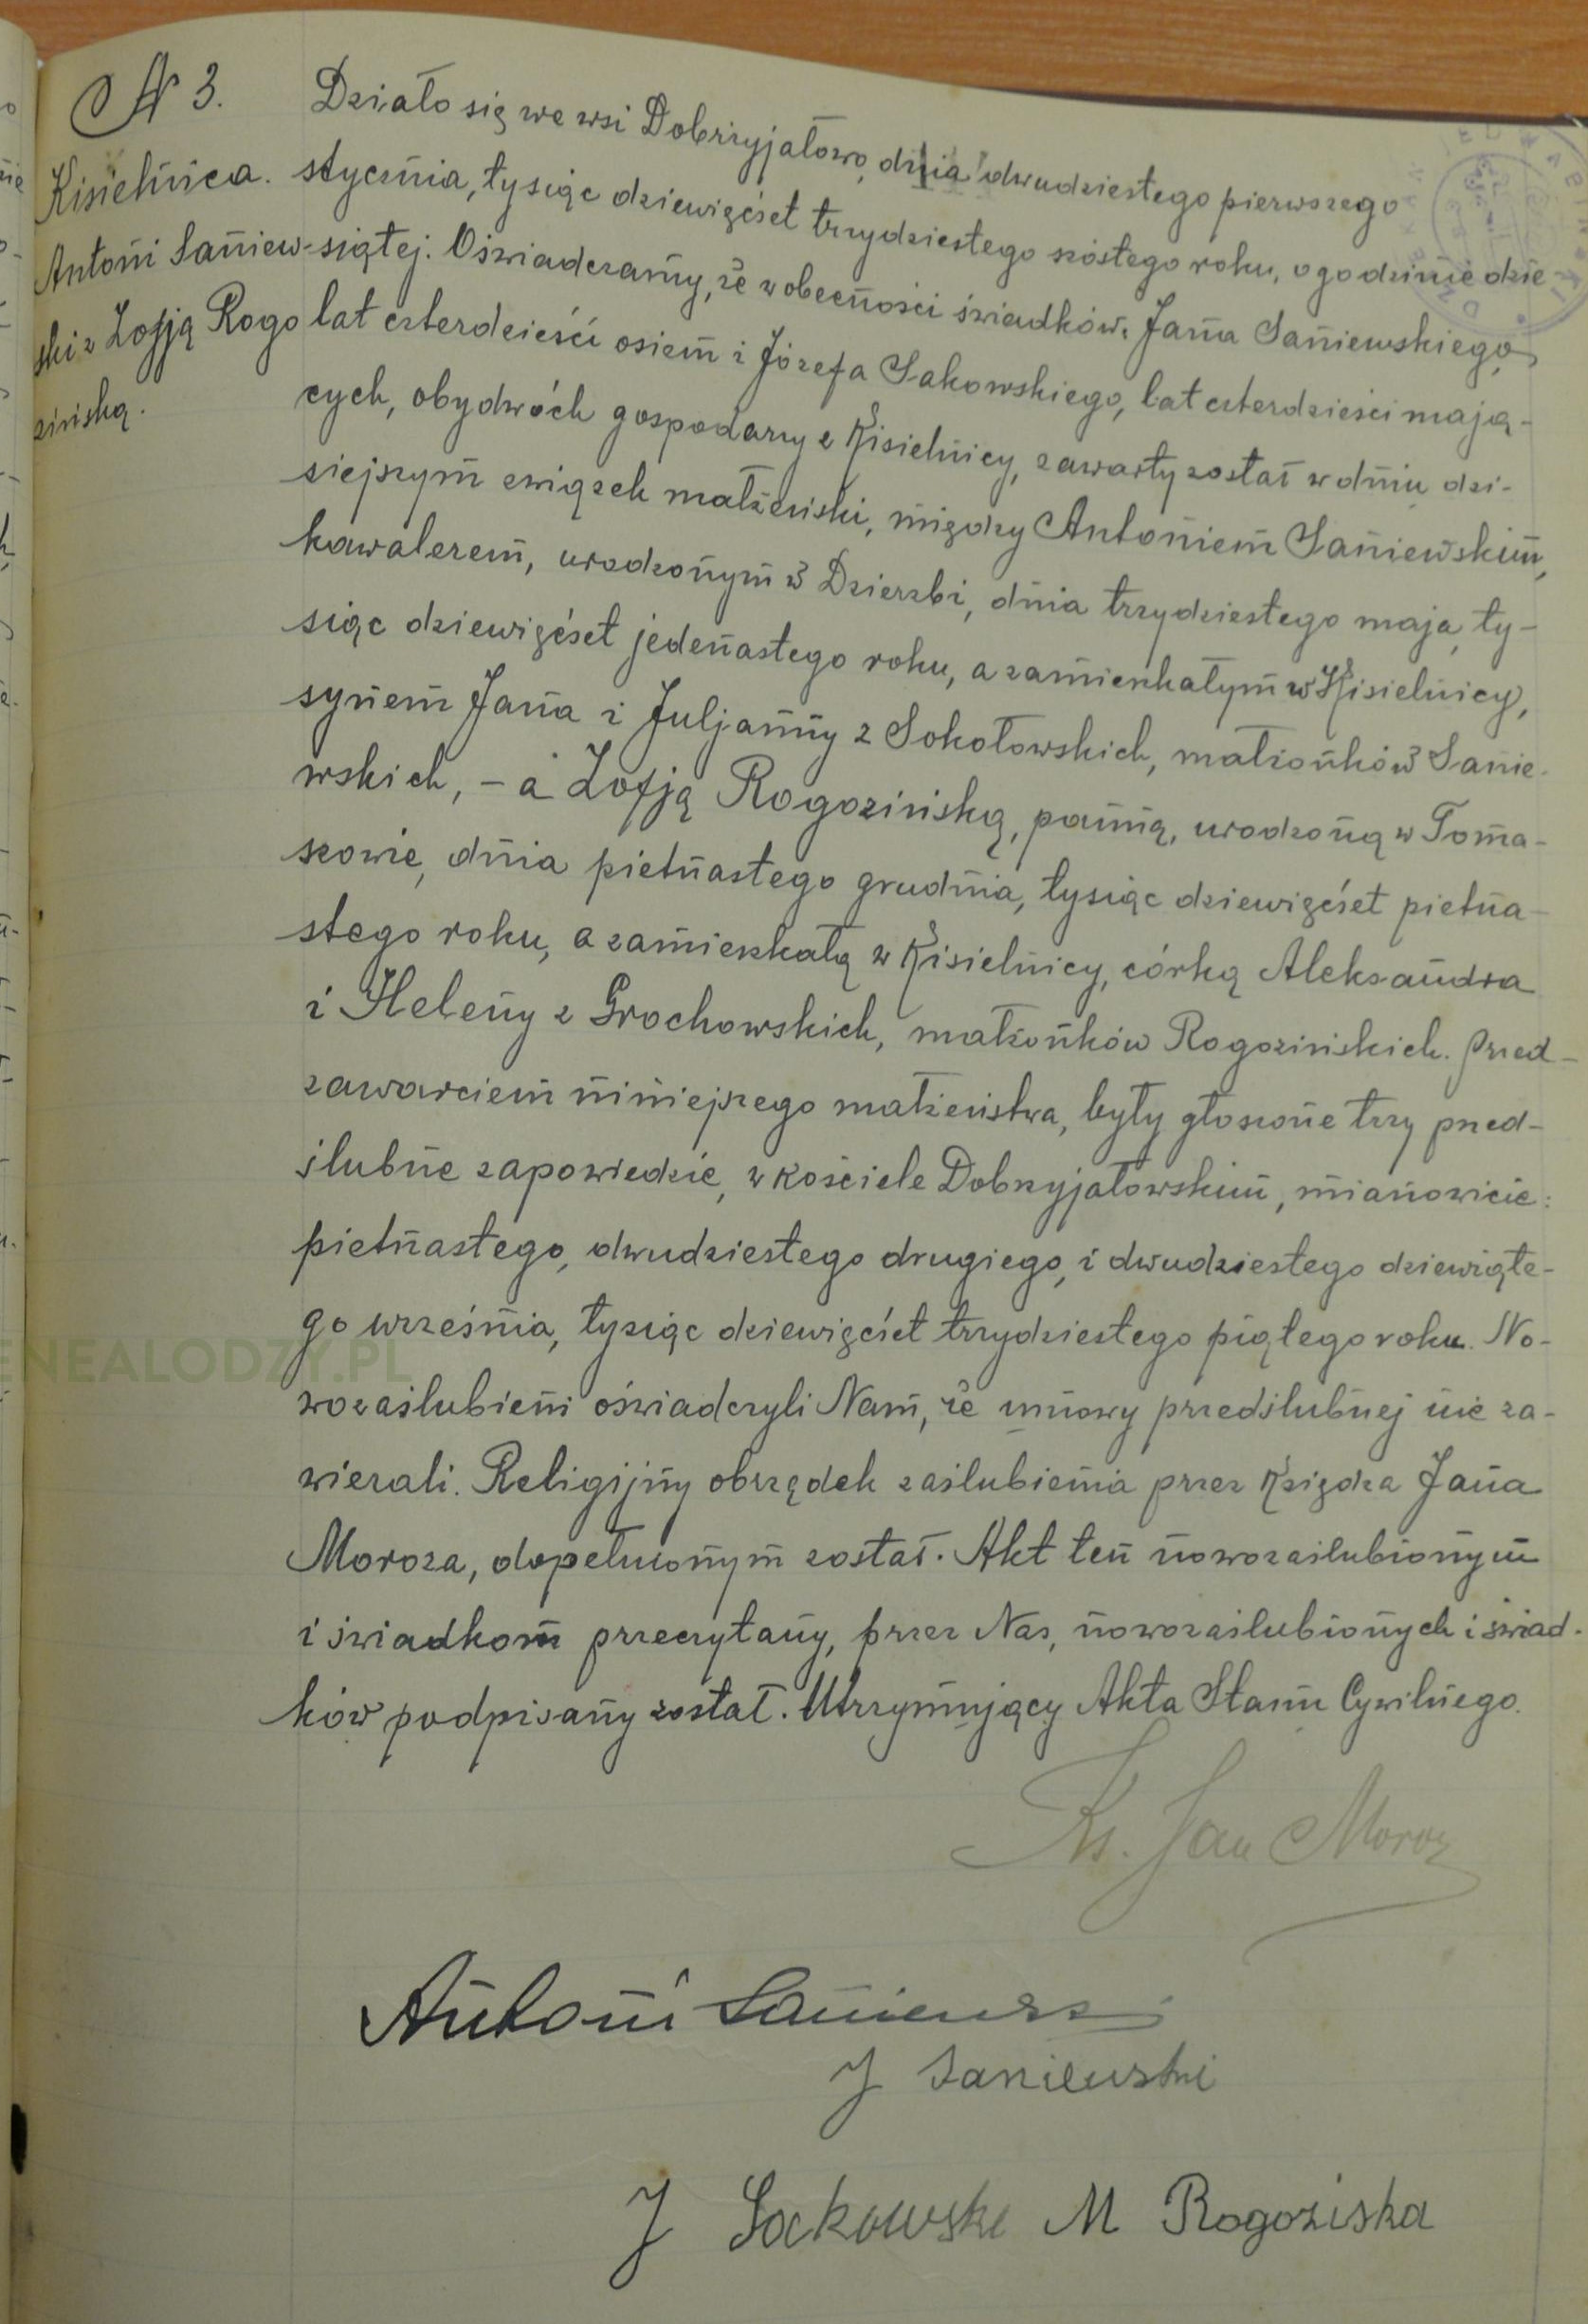 N 3.
Kisielnica.
Antoni Saniew-
ski z Zofją Rogo
zińską.
Działo się we wsi Dobrzyjałowo, dnia dwudziestego pierwszego
stycznia, tysiąc dziewięćset trzydziestego szóstego roku, o godzinie dzie
siątej. Oświadczamy, że w obecności świadków, Jana Saniewskiego,
lat czterdzieści osiem i Józefa Sakowskiego, lat czterdzieści mają-
cych, obydwóch gospodarzy z Kisielnicy, zawarty został w dniu dzi-
siejszym związek małżeński, między Antoniem Saniewskim,
kawalerem, urodzonym w Dzierzbi, dnia trzydziestego maja, ty-
siąc dziewięćset jedenastego roku, a zamieszkałym w Kisielnicy,
synem Jana i Juljanny z Sokołowskich, małżonków Sanie-
wskich, – a Zofją Rogozińską, panną, urodzoną w Toma-
szowie, dnia pietnastego grudnia, tysiąc dziewięćset pietna-
stego roku, a zamieszkałą w Kisielnicy, córką Aleksandra
i Heleny z Grochowskich, małżonków Rogozińskich. Przed-
zawarciem niniejszego małżeństwa, były głoszone trzy przed-
ślubne zapowiedzie, w kościele Dobrzyjałowskim, mianowicie:
pietnastego, dwudziestego drugiego, i dwudziestego dziewiąte-
go września, tysiąc dziewięćset trzydziestego piątego roku. No-
wozaślubieni oświadczyli Nam, że umowy przedślubnej nie za-
wierali. Religijny obrządek zaślubienia przez Księdza Jana
Moroza, dopełnionym został. Akt ten nowozaślubionym
i świadkom przeczytany, przez Nas, nowozaślubionych i świad-
ków podpisany został. Utrzymujący Akta Stanu Cywilnego.
Ks. Jan Moroz
Antoni Saniewsi
J Saniewski
J Sakowski M Rogoziska
ENEALODZY.PL